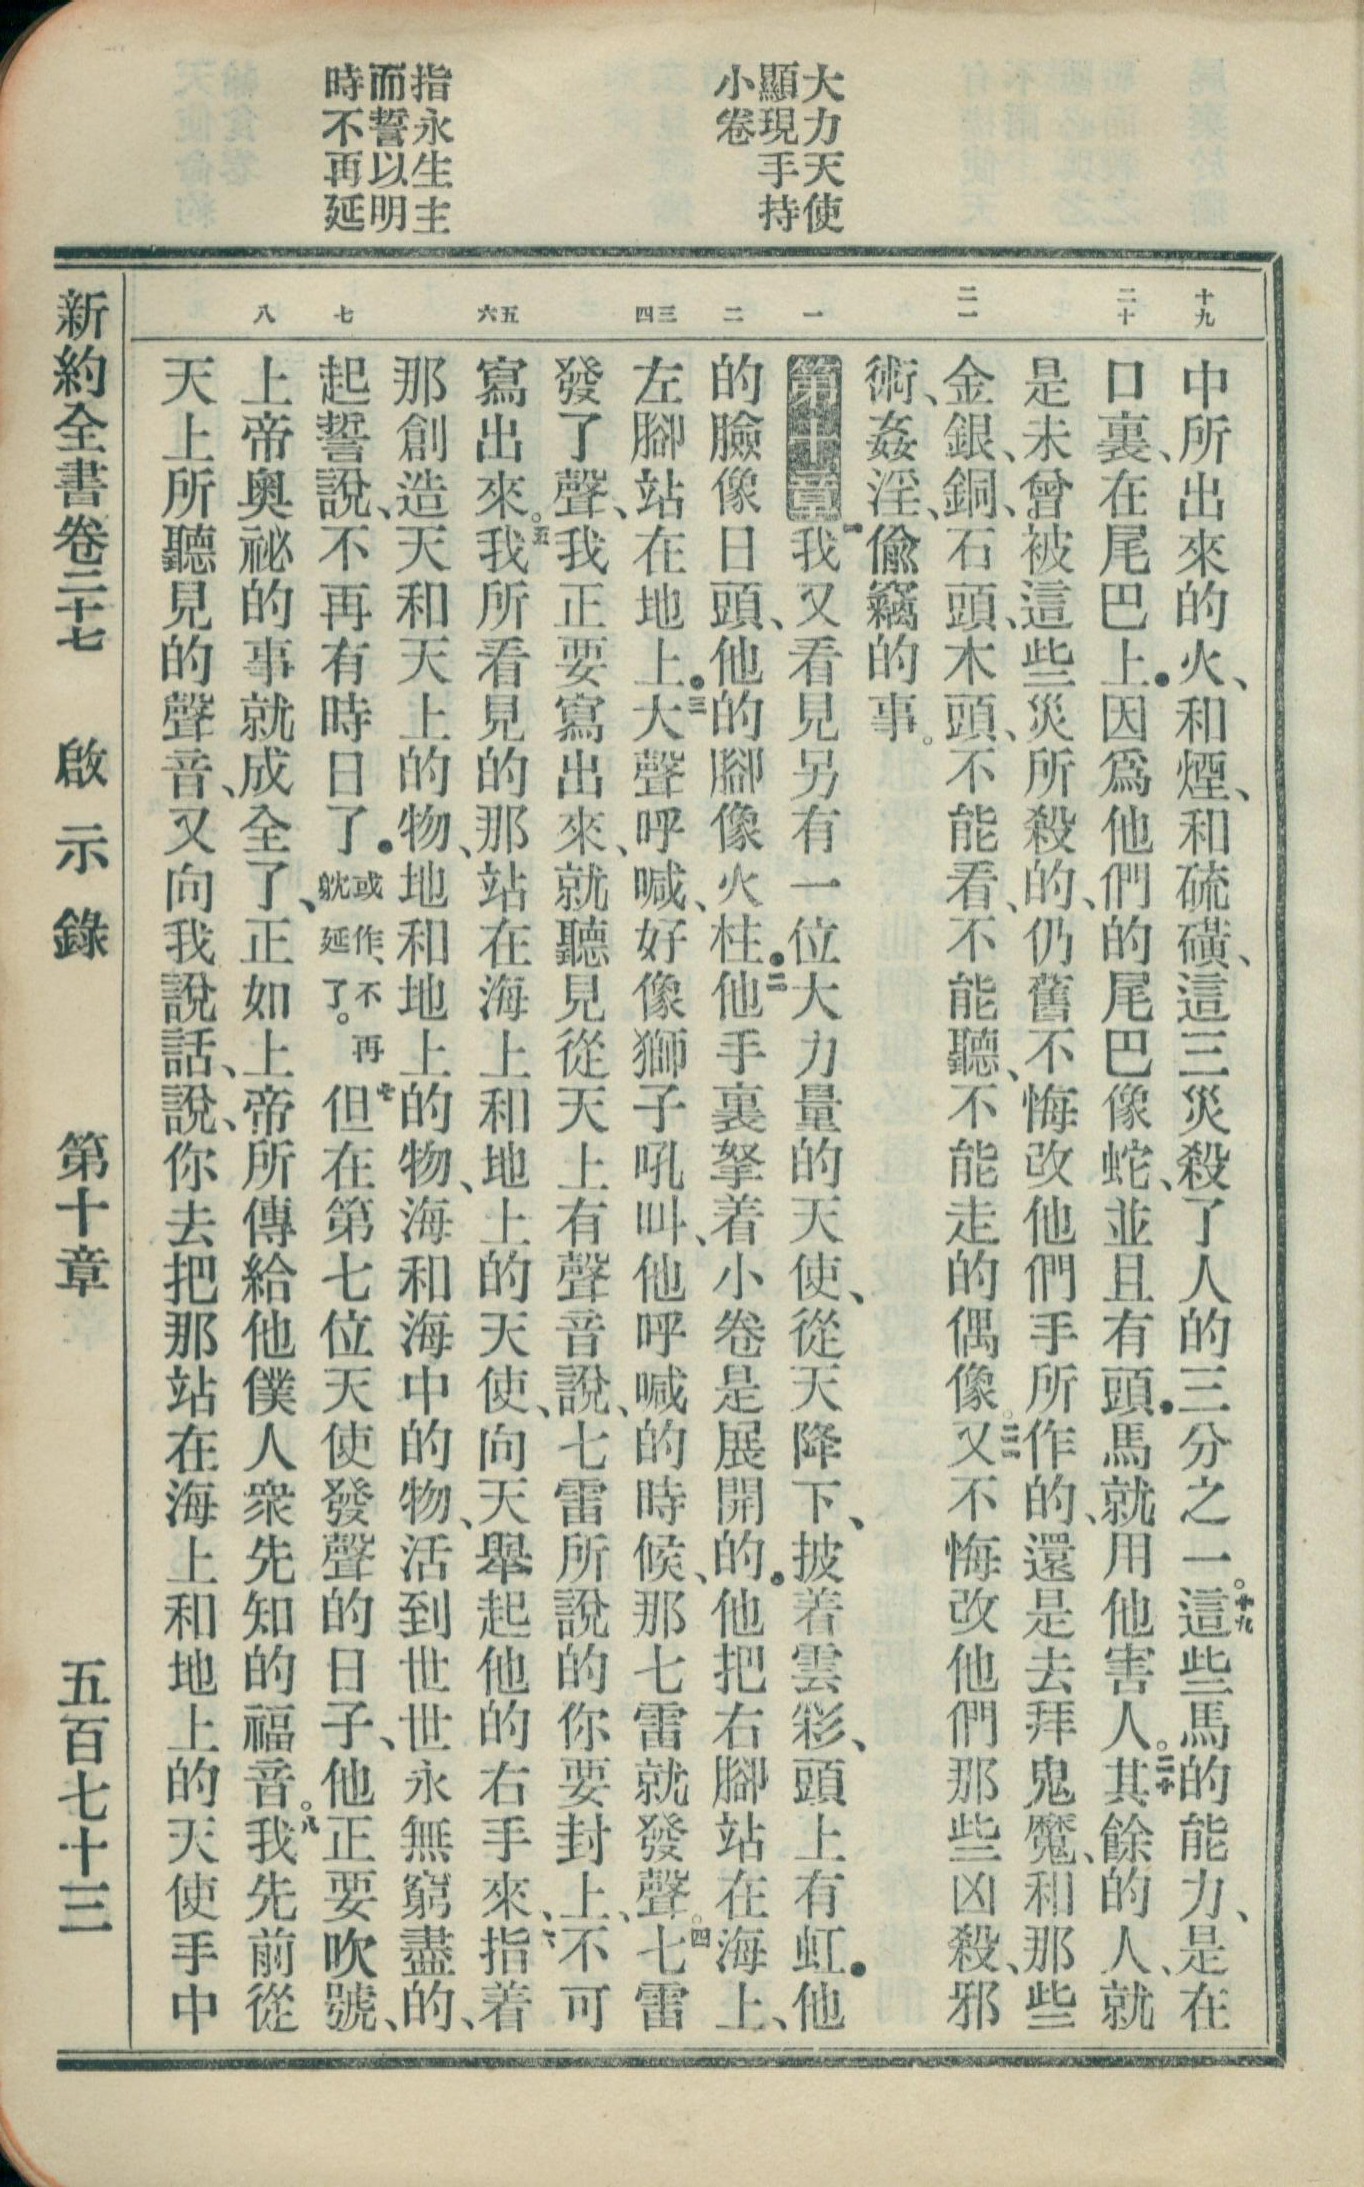 大力天使
顯現手持
小卷
指永生主
而誓以明
時不再延
十九
二十
二一
一
二
三四
五六
七
八
中所出來的火、和煙、和硫磺、這三災殺了人的三分之一。十九這些馬的能力、是在
口裏、在尾巴上．因爲他們的尾巴像蛇、並且有頭．馬就用他害人。二十其餘的人、就
是未曾被這些災所殺的、仍舊不悔改他們手所作的、還是去拜鬼魔、和那些
金銀、銅、石頭、木頭、不能看、不能聽、不能走的偶像。二一又不悔改他們那些凶殺、邪
術、姦淫、偸竊的事。
第十章一我又看見另有一位大力量的天使、從天降下、披着雲彩、頭上有虹．他
的臉像日頭、他的腳像火柱．二他手裏拏着小卷是展開的．他把右腳站在海上、
左腳站在地上．三大聲呼喊、好像獅子吼叫、他呼喊的時候、那七雷就發聲。四七雷
發了聲、我正要寫出來、就聽見從天上有聲音說、七雷所說的你要封上、不可
寫出來。五我所看見的那站在海上和地上的天使、向天舉起他的右手來、六指着
那創造天和天上的物、地和地上的物、海和海中的物、活到世世永無窮盡的、
起誓說、不再有時日了．或作、不再躭延了。七但在第七位天使發聲的日子、他正要吹號、
上帝奧祕的事就成全了、正如上帝所傳給他僕人衆先知的福音。八我先前從
天上所聽見的聲音、又向我說話、說、你去把那站在海上和地上的天使手中
新約全書卷二十七 啟示錄 第十章 五百七十三